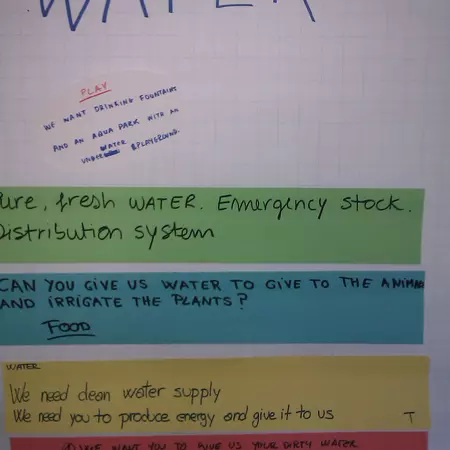 WATER
PLAY
WE WANT DRINKING FOUNTAINS
AND AN AQUA PARK WITH AN
UNDER WATER PLAYGROUND.
Pure, fresh WATER. Emergency stock.
Distribution system
CAN YOU GIVE US WATER TO GIVE TO THE ANIMALS
AND IRRIGATE THE PLANTS?
FOOD
WATER
We need clean water supply
We need you to produce energy and give it to us
T
WE WANT YOU TO GIVE US YOUR DIRTY WATER